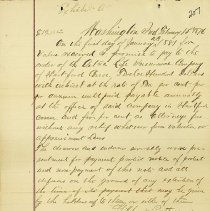 207
Exhibit A
$12,000 Washington Ind February 15 1876
On the first day of January 1881 for
Value received I promise to pay to the
order of the Aetna Life Insurance Company
of Hartford Conn Twelve Hundred Dollars
with interest at the rate of Ten per cent per
annum
at the office of said company in Hartford
conn and five per cent as Attorneys fees
without any relief whatever from valuation or
appraisement laws
The drawers and endorsers severally waive pre-
sentment for payment protest notice of protest
and non payment of this note and all
defense on the ground of any extension of
the time of its payment that may be given
by the holders to them or either of them